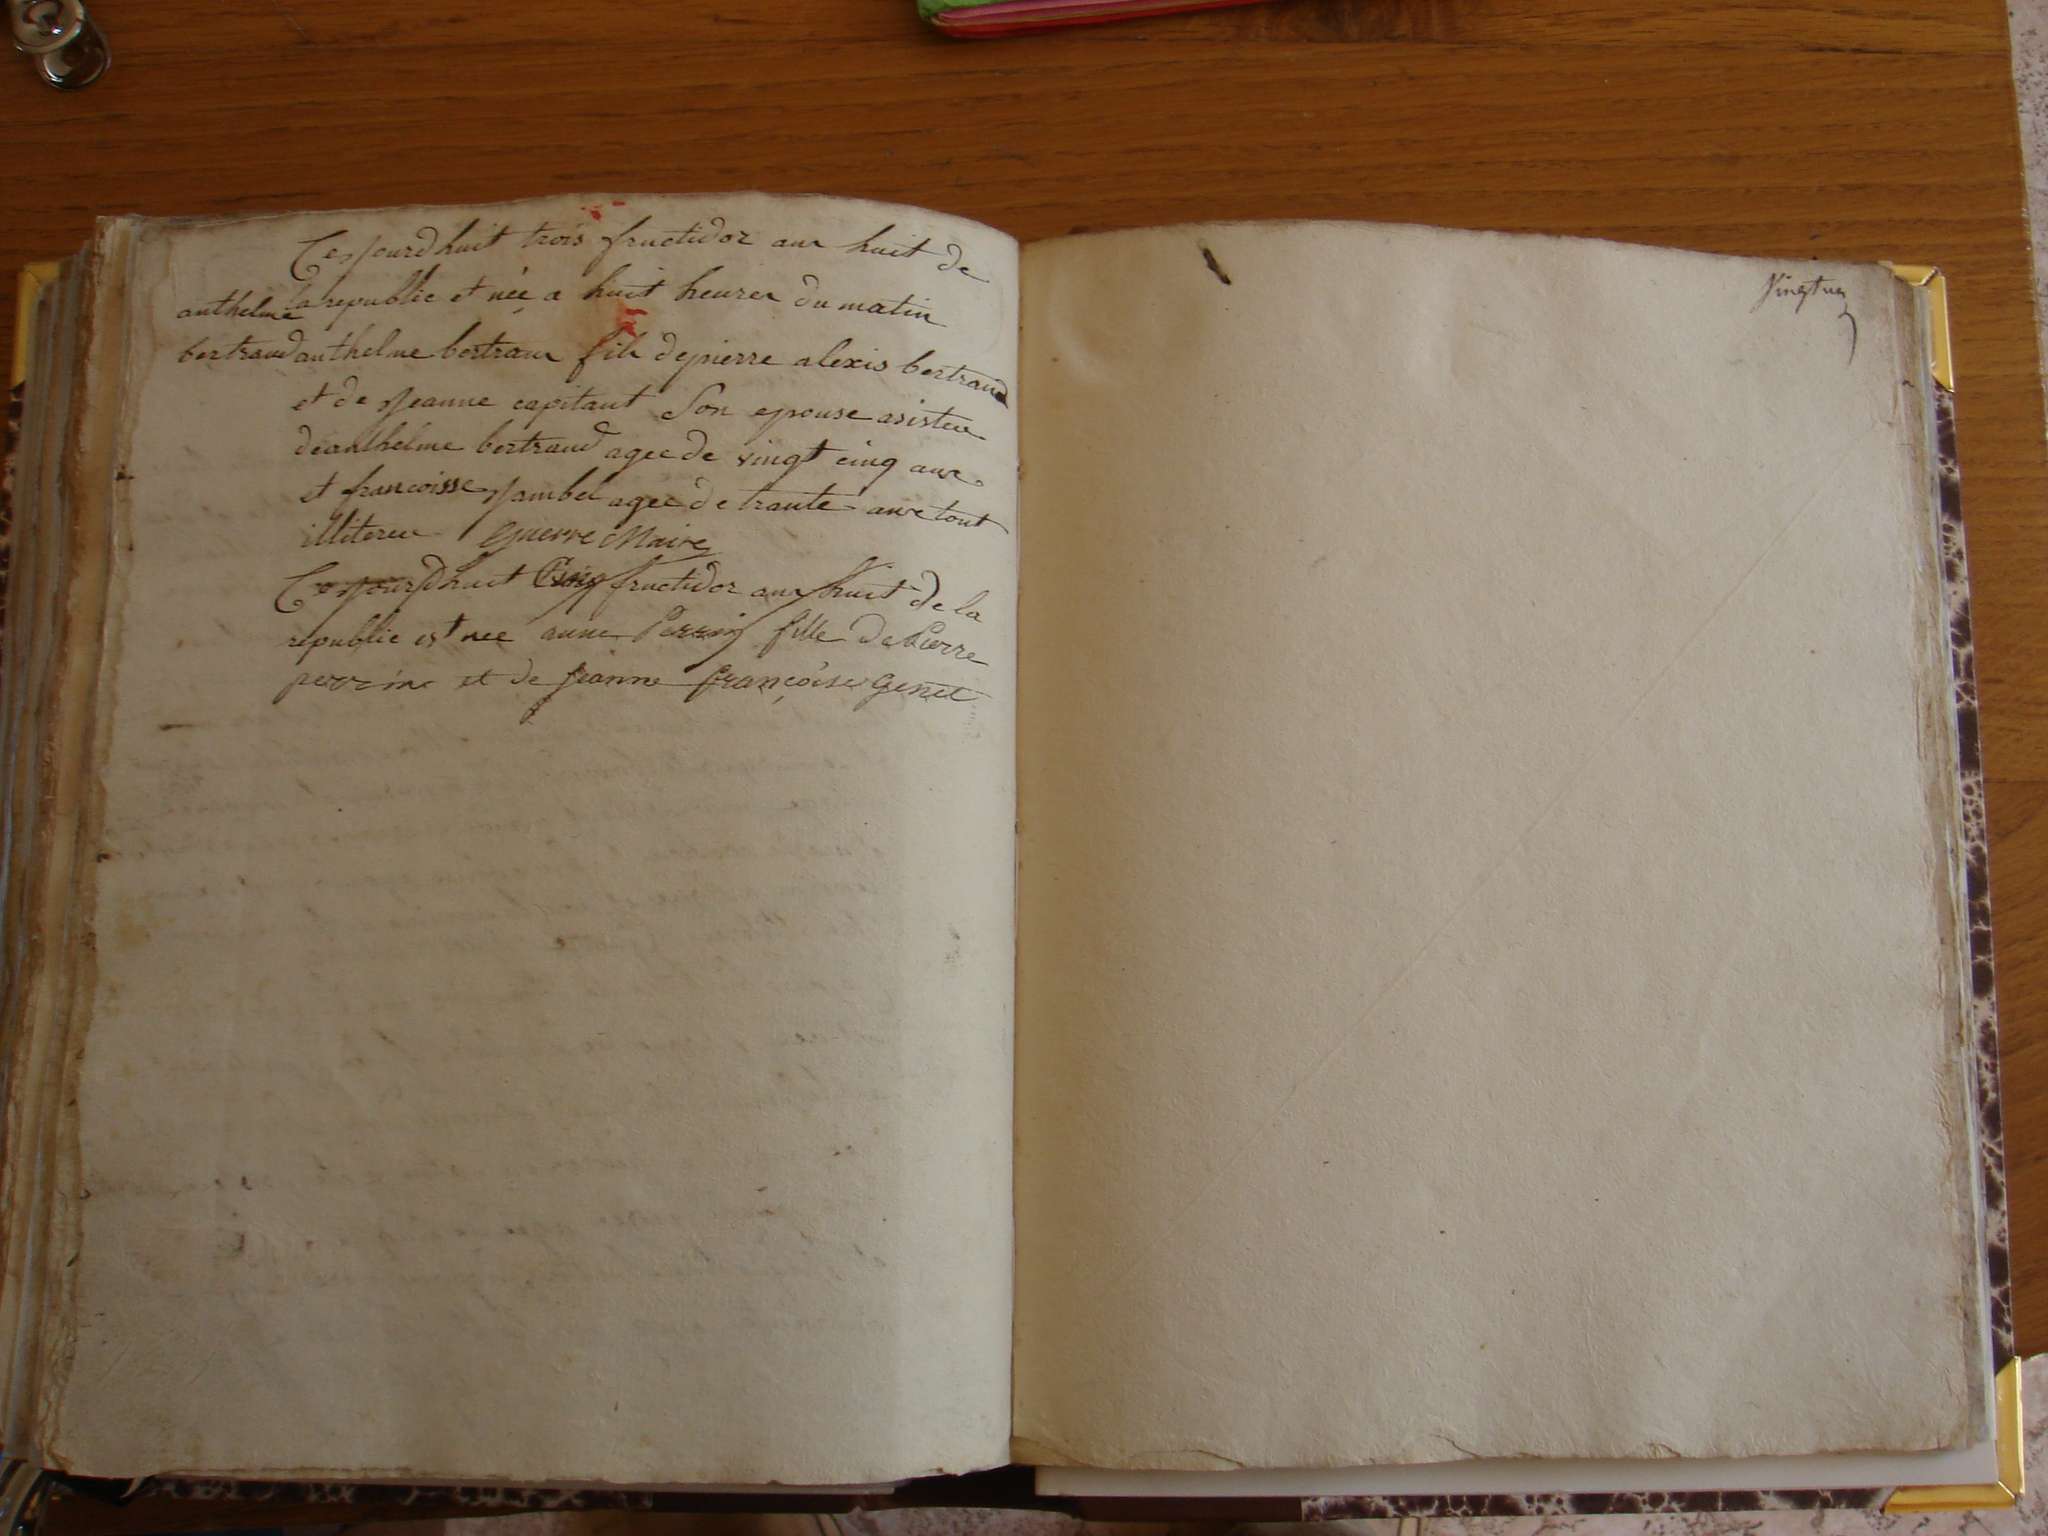 Cejourdhuit trois fructidor anx huit de
la republic et née a huit heures du matin
anthelme
bertrand
anthelme bertran fils depierre alexis bertrand
et de Jeanne capitant Son epouse asisteu
deanthelme bertrand agee de vingt cinq ans
et francoisse Jambel agee de trante ans tout
illitereu Guerre Maire
Cejourdhuit Cinq fructidor anx huit de la
republic est nee anne Perrin fille de Pierre
perrin et de jeanne françoise Genet
Vingtun